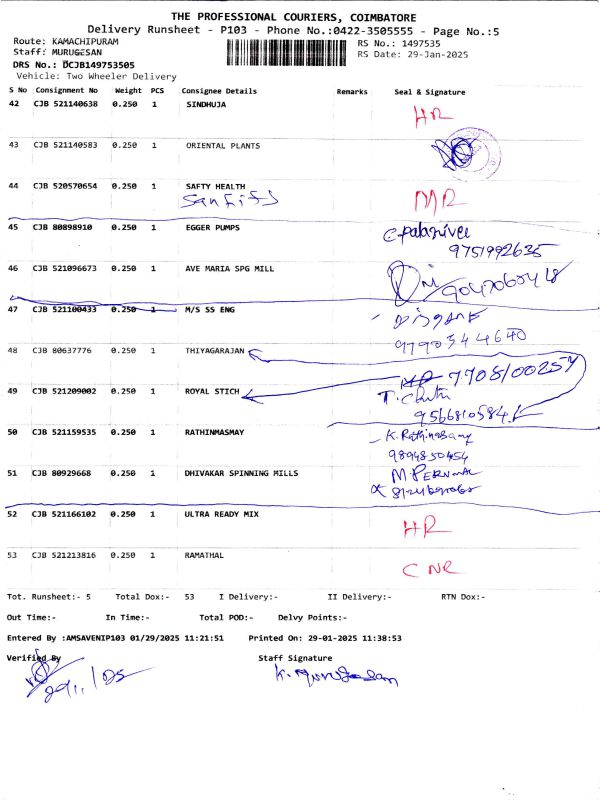 THE PROFESSIONAL COURIERS, COIMBATORE
Delivery Runsheet - P103 - Phone No.:0422-3505555 - Page No.:5
Route: KAMACHIPURAM RS No.: 1497535
Staff: MURUGESAN RS Date: 29-Jan-2025
DRS No.: DCJB149753505
Vehicle: Two Wheeler Delivery
S No Consignment No Weight PCS Consignee Details Remarks Seal & Signature
42 CJB 521140638 0.250 1 SINDHUJA HR
43 CJB 521140583 0.250 1 ORIENTAL PLANTS
44 CJB 520570654 0.250 1 SAFTY HEALTH
45 CJB 80898910 0.250 1 EGGER PUMPS C. Palanivel
9751992635
46 CJB 521096673 0.250 1 AVE MARIA SPG MILL
47 CJB 521100433 0.250 1 M/S SS ENG
9790344640
48 CJB 80637776 0.250 1 THIYAGARAJAN
49 CJB 521209002 0.250 1 ROYAL STICH
9566810584
50 CJB 521159535 0.250 1 RATHINMASMAY K. Rathinasamy
9894850454
51 CJB 80929668 0.250 1 DHIVAKAR SPINNING MILLS
52 CJB 521166102 0.250 1 ULTRA READY MIX HR
53 CJB 521213816 0.250 1 RAMATHAL CNR
Tot. Runsheet:- 5 Total Dox:- 53 I Delivery:- II Delivery:- RTN Dox:-
Out Time:- In Time:- Total POD:- Delvy Points:-
Entered By :AMSAVENIP103 01/29/2025 11:21:51 Printed On: 29-01-2025 11:38:53
Verified By Staff Signature